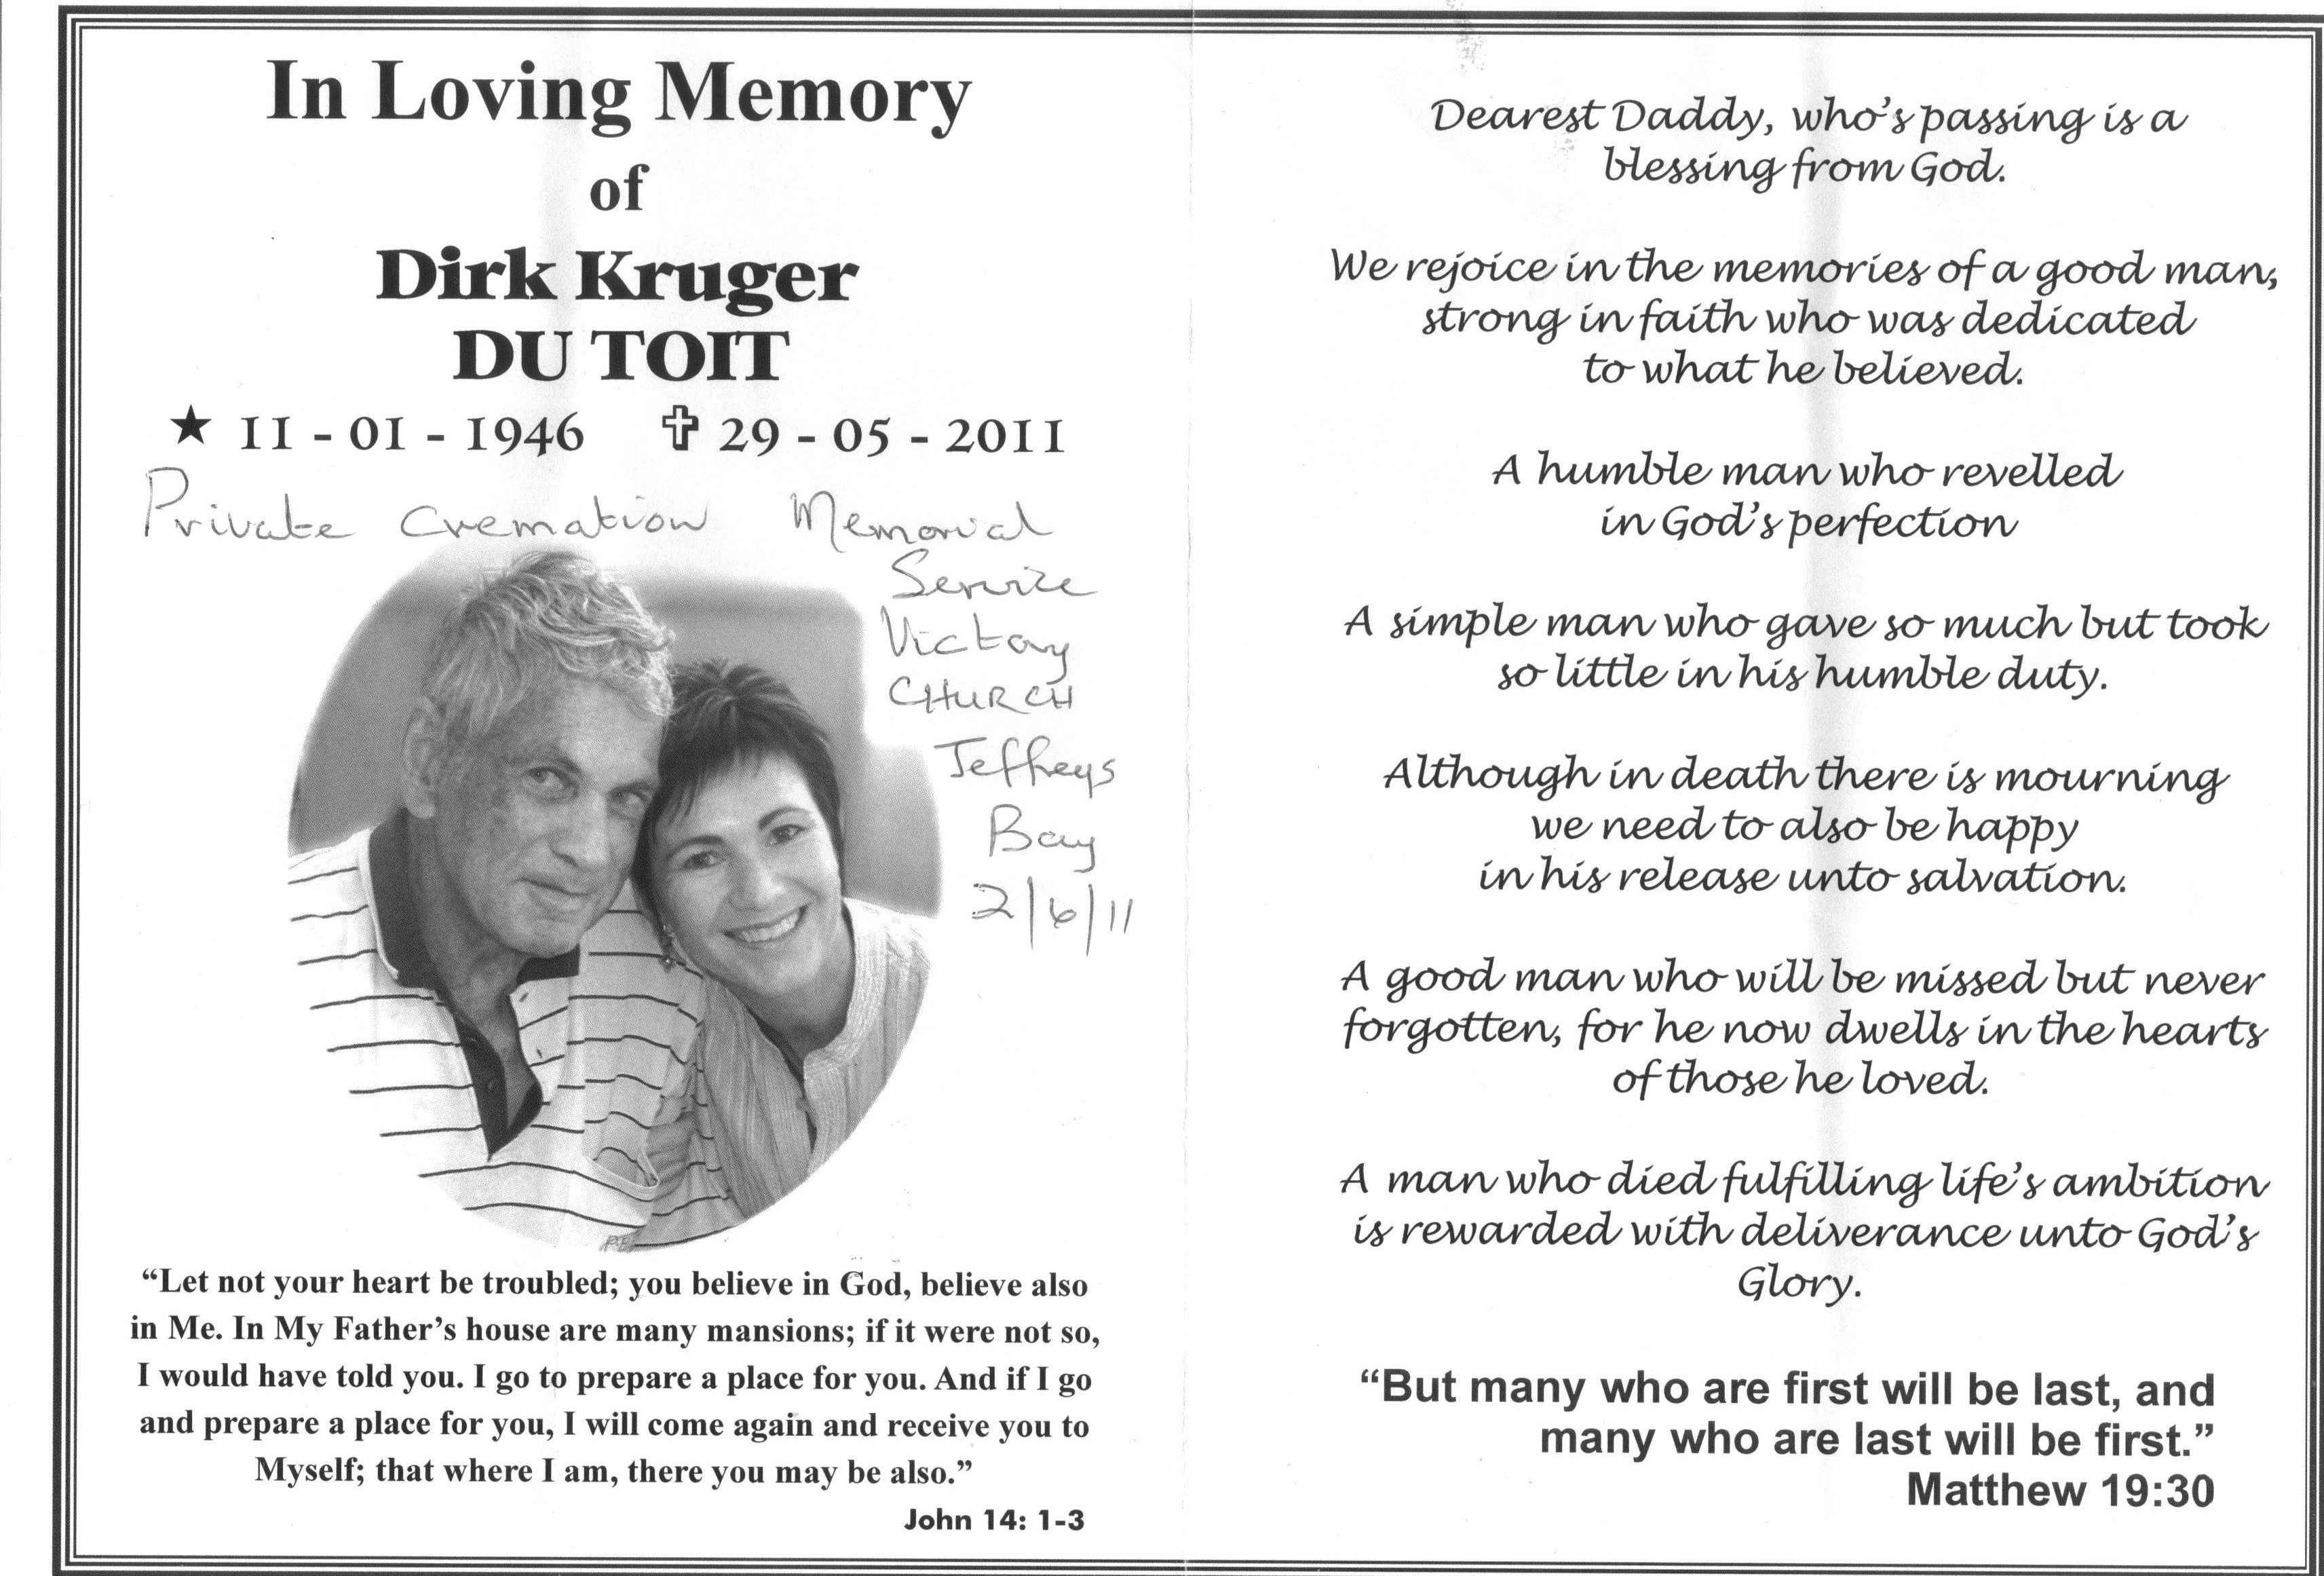 In Loving Memory
of
Dirk Kruger
DU TOIT
★ 11 - 01 - 1946 ✞ 29 - 05 - 2011
Private Cremation Memorial
Service
Victory
CHURCH
Jeffreys
Bay
2/6/11
“Let not your heart be troubled; you believe in God, believe also
in Me. In My Father’s house are many mansions; if it were not so,
I would have told you. I go to prepare a place for you. And if I go
and prepare a place for you, I will come again and receive you to
Myself; that where I am, there you may be also.”
John 14: 1-3
Dearest Daddy, who’s passing is a
blessing from God.
We rejoice in the memories of a good man,
strong in faith who was dedicated
to what he believed.
A humble man who revelled
in God’s perfection
A simple man who gave so much but took
so little in his humble duty.
Although in death there is mourning
we need to also be happy
in his release unto salvation.
A good man who will be missed but never
forgotten, for he now dwells in the hearts
of those he loved.
A man who died fulfilling life’s ambition
is rewarded with deliverance unto God’s
Glory.
“But many who are first will be last, and
many who are last will be first.”
Matthew 19:30